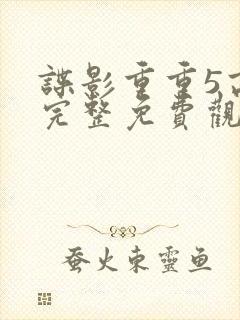 諜影重重5高
完整免費觀
蚕火東靈鱼